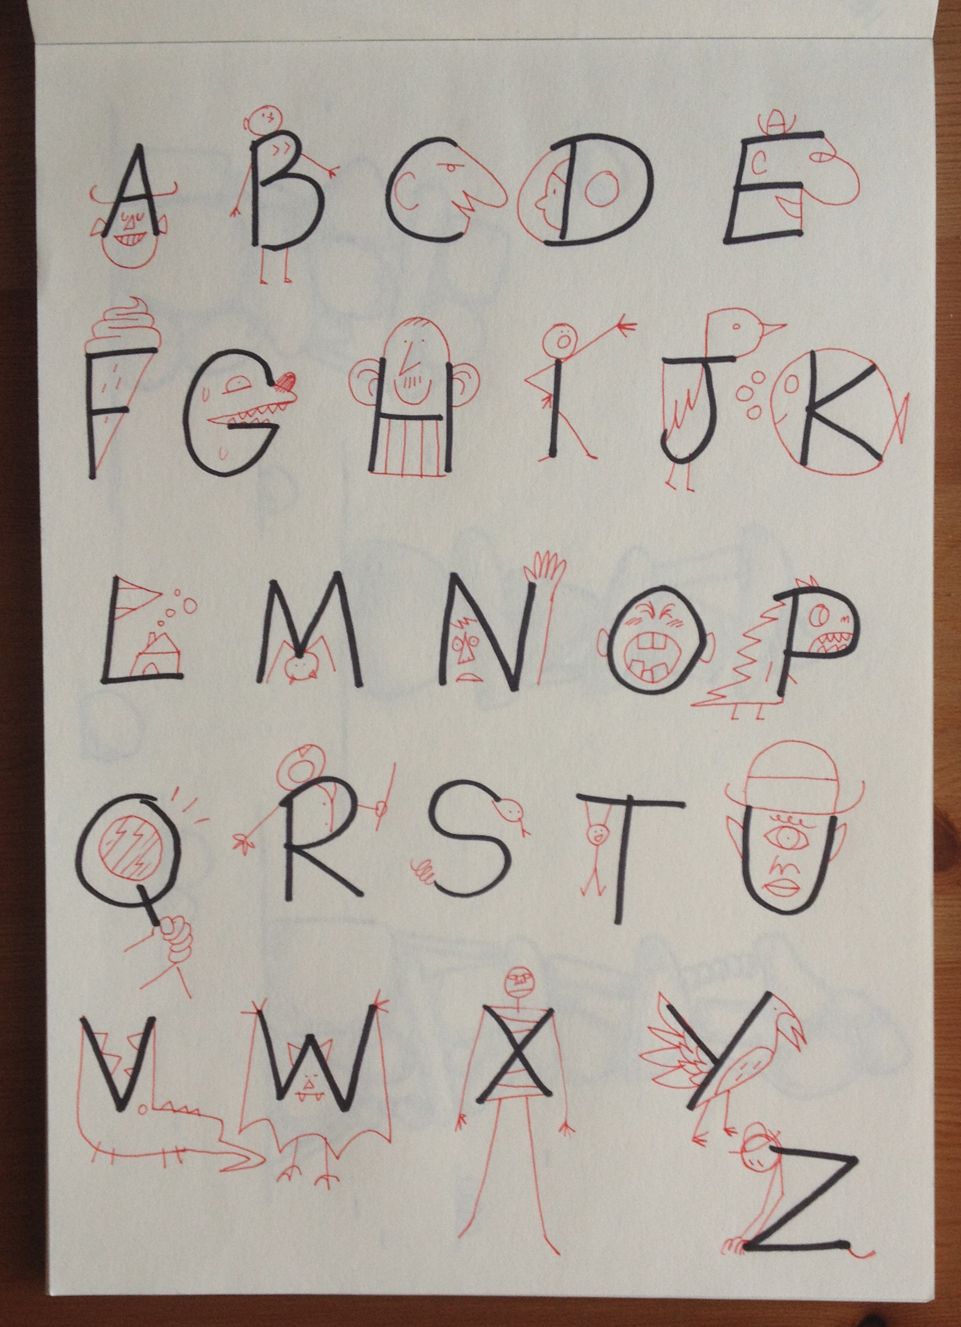 A B C D E
F G H I J K
L M N O P
Q R S T U
V W X Y
Z